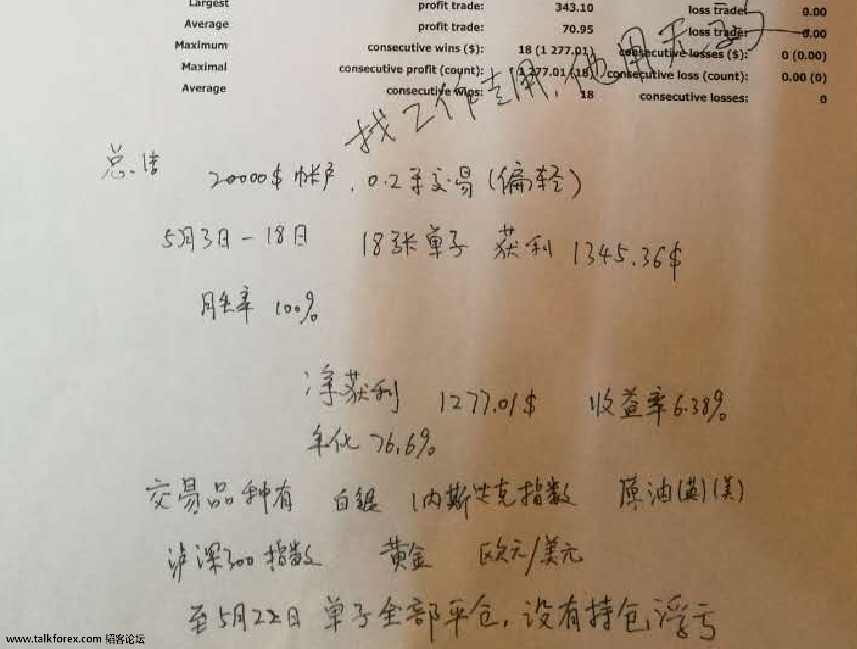 Largest profit trade: 343.10 loss trade: 0.00
Average profit trade: 70.95 loss trade: 0.00
Maximum consecutive wins ($): 18 (1 277.01) consecutive losses ($): 0 (0.00)
Maximal consecutive profit (count): 1 277.01 (18) consecutive loss (count): 0.00 (0)
Average consecutive wins: 18 consecutive losses: 0
总结 20000$帐户，0.2手交易(偏轻)
5月3日-18日 18张单子 获利 1345.36$
胜率 100%
净获利 1277.01$ 收益率6.38%
年化 76.6%
交易品种有 白银 纳斯达克指数 原油(英)(美)
沪深300指数 黄金 欧元/美元
至5月22日 单子全部平仓，没有持仓浮亏
www.talkforex.com 韬客论坛